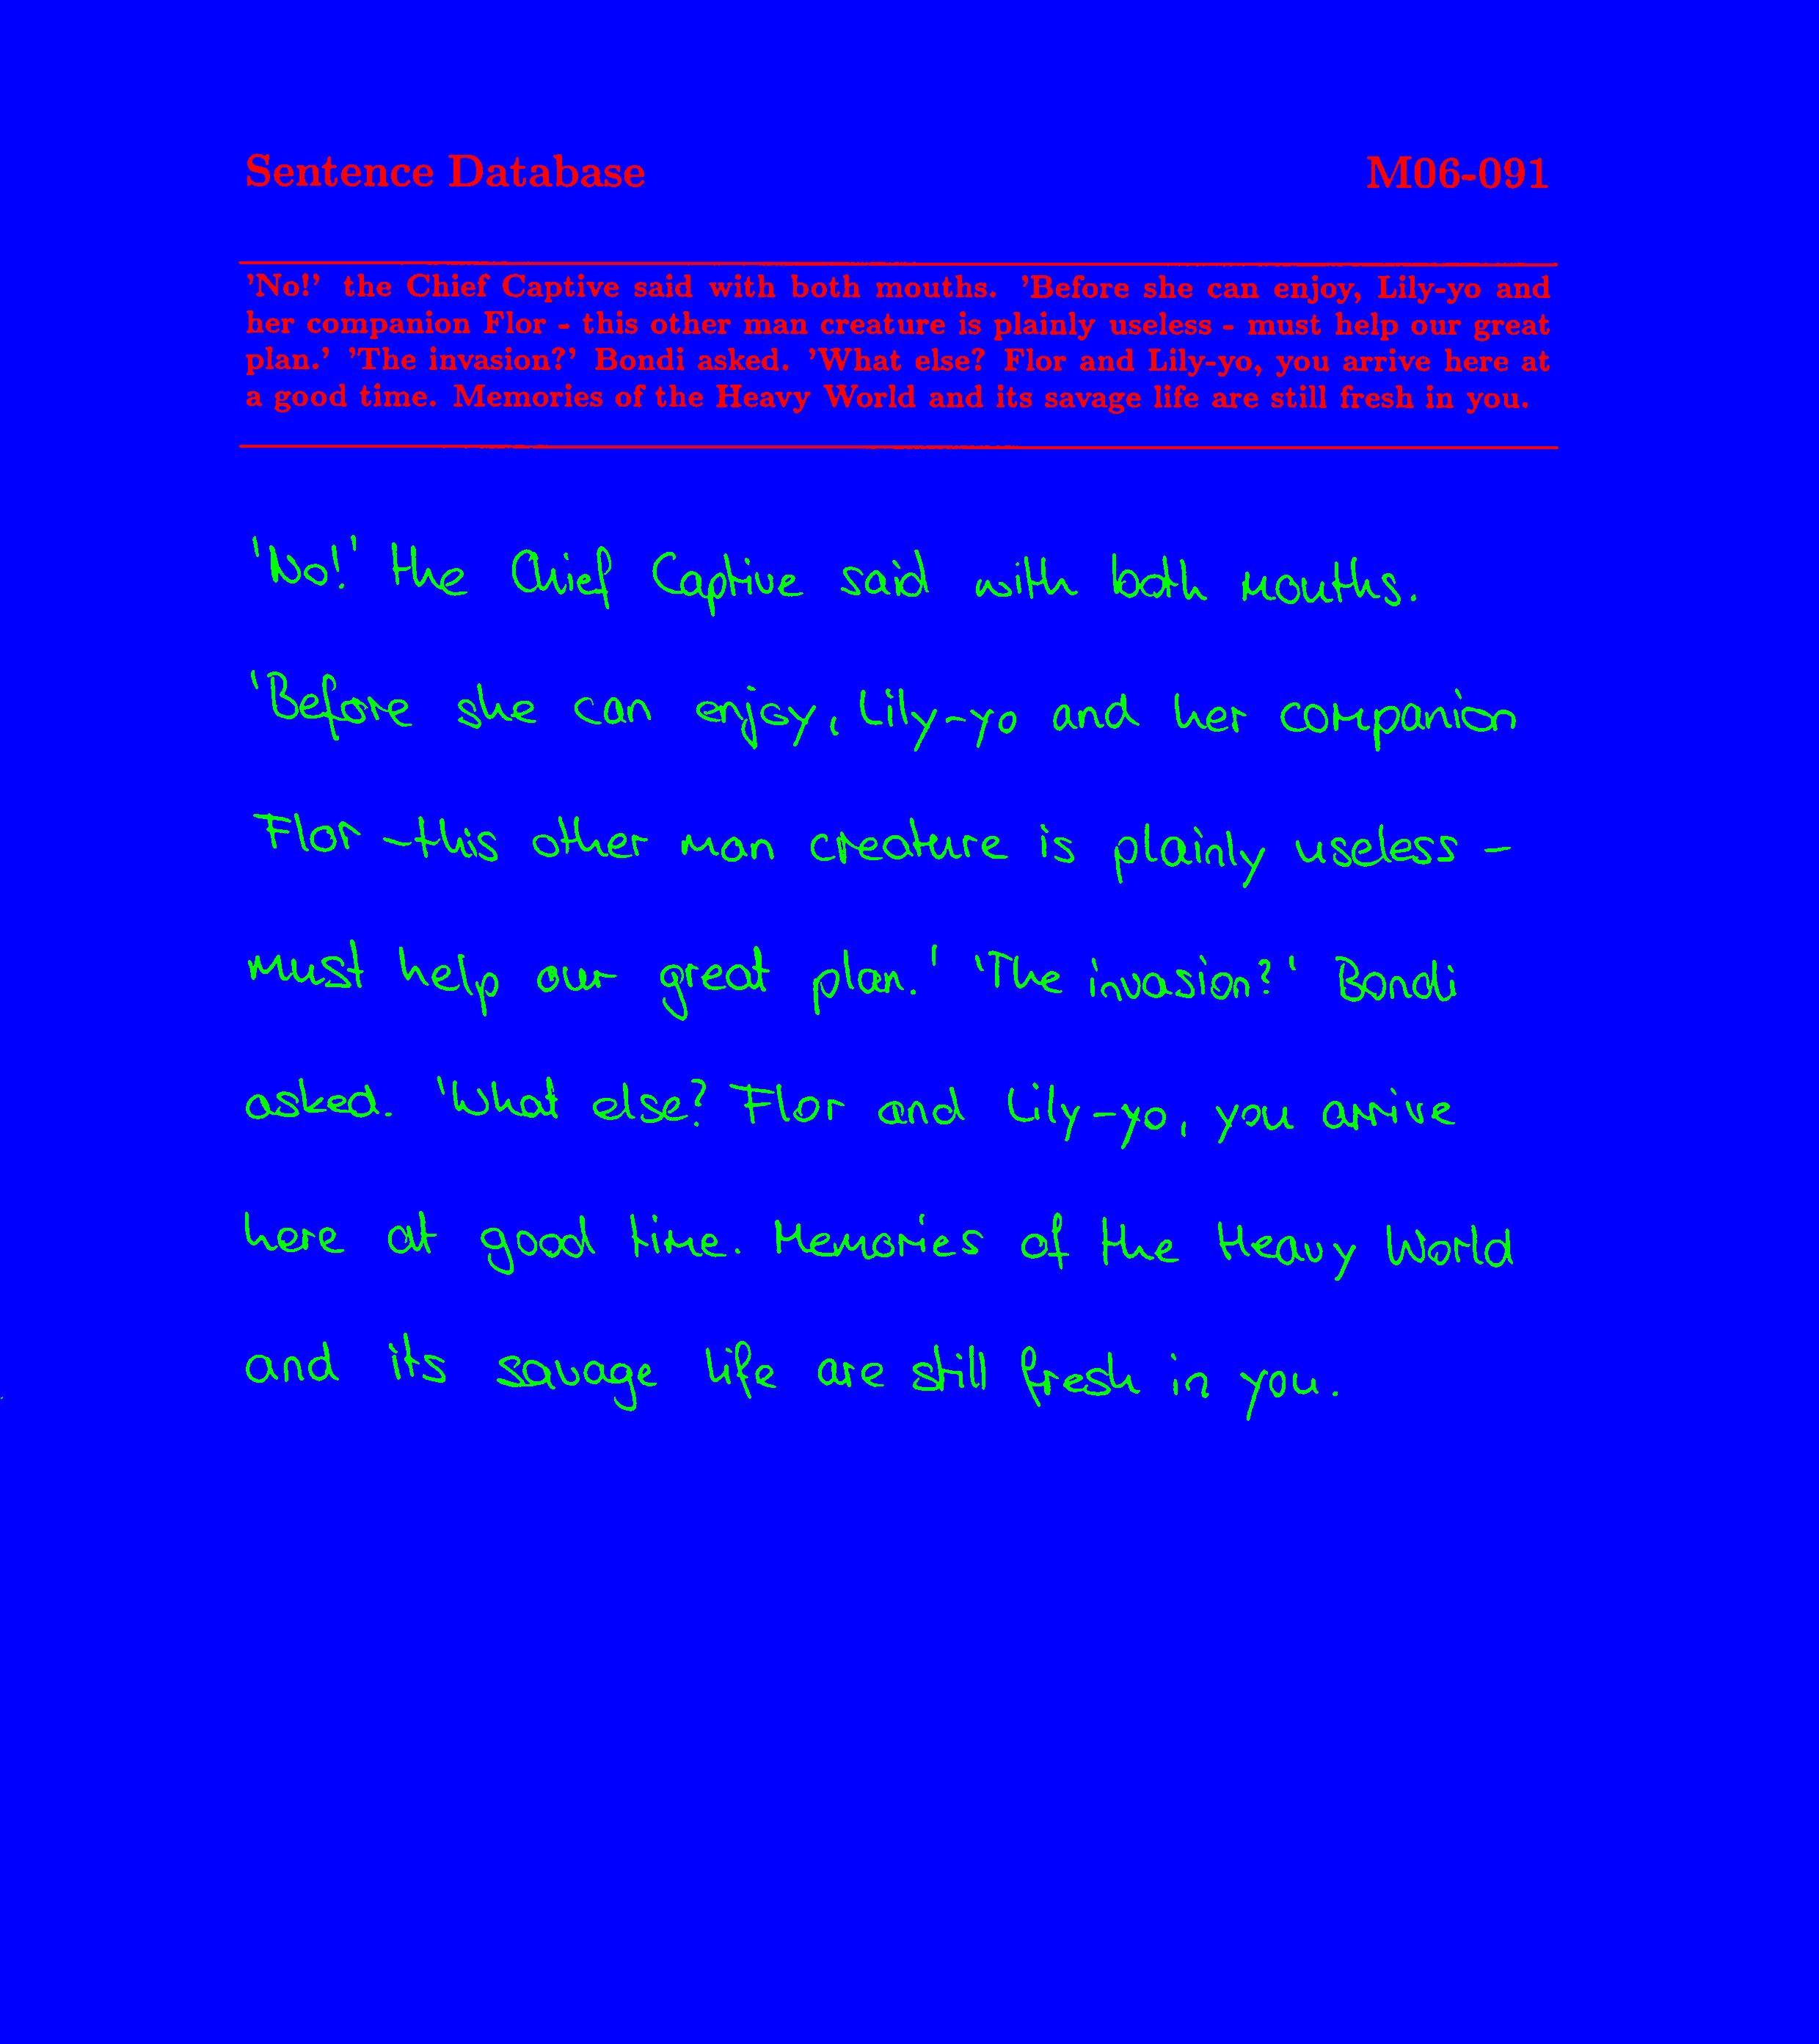 Sentence Database M06-091
'No!' the Chief Captive said with both mouths. 'Before she can enjoy, Lily-yo and
her companion Flor - this other man creature is plainly useless - must help our great
plan.' 'The invasion?' Bondi asked. 'What else? Flor and Lily-yo, you arrive here at
a good time. Memories of the Heavy World and its savage life are still fresh in you.
'No!' the Chief Captive said with both mouths.
'Before she can enjoy, Lily-yo and her companion
Flor - this other man creature is plainly useless -
must help our great plan.' 'The invasion?' Bondi
asked. 'What else? Flor and Lily-yo, you arrive
here at good time. Memories of the Heavy World
and its savage life are still fresh in you.